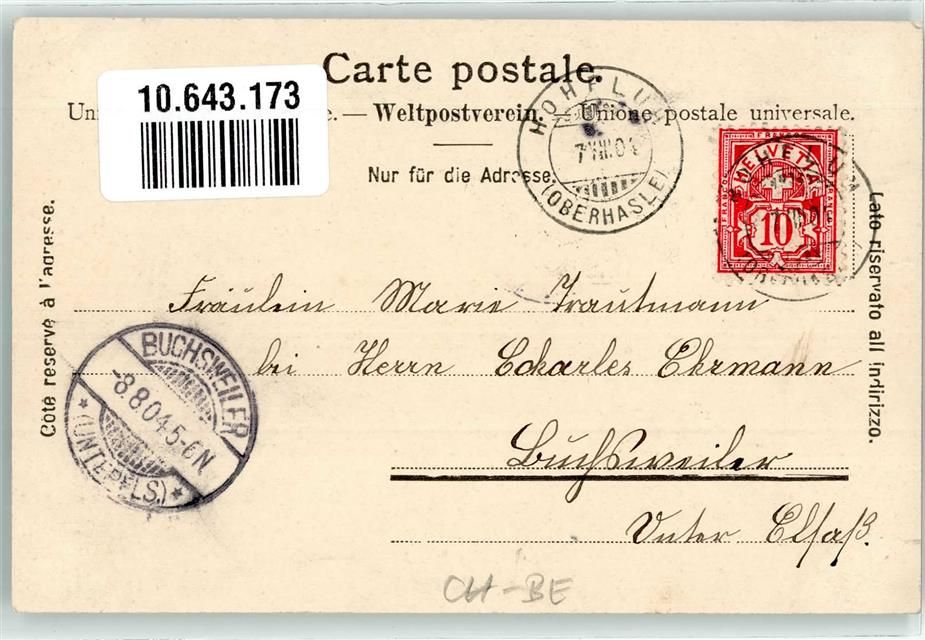 Carte postale.
10.643.173
Weltpostverein. — Unione postale universale.
Nur für die Adresse.
HOHFLUH
7 VIII.04
(OBERHASLE)
FRANCO
HELVETIA
10
Côté réservé à l'adresse.
Lato riservato all indirizzo.
Fräulein Marie Trautmann
bei Herrn Echarles Ehrmann
Buchsweiler
Unter Elsaß.
BUCHSWEILER
-8.8.04.5-6N
* (UNTERELS.) *
CH-BE